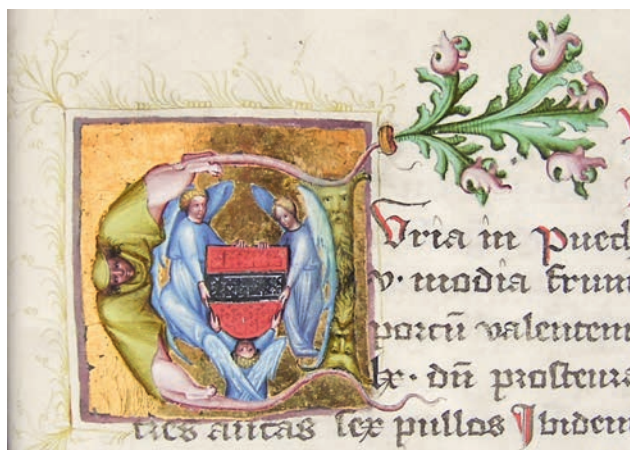 Vria in pued
v· modia frum
porcū valentem
lx· dn̄ prosteura
tres aucas sex pullos Ibidem